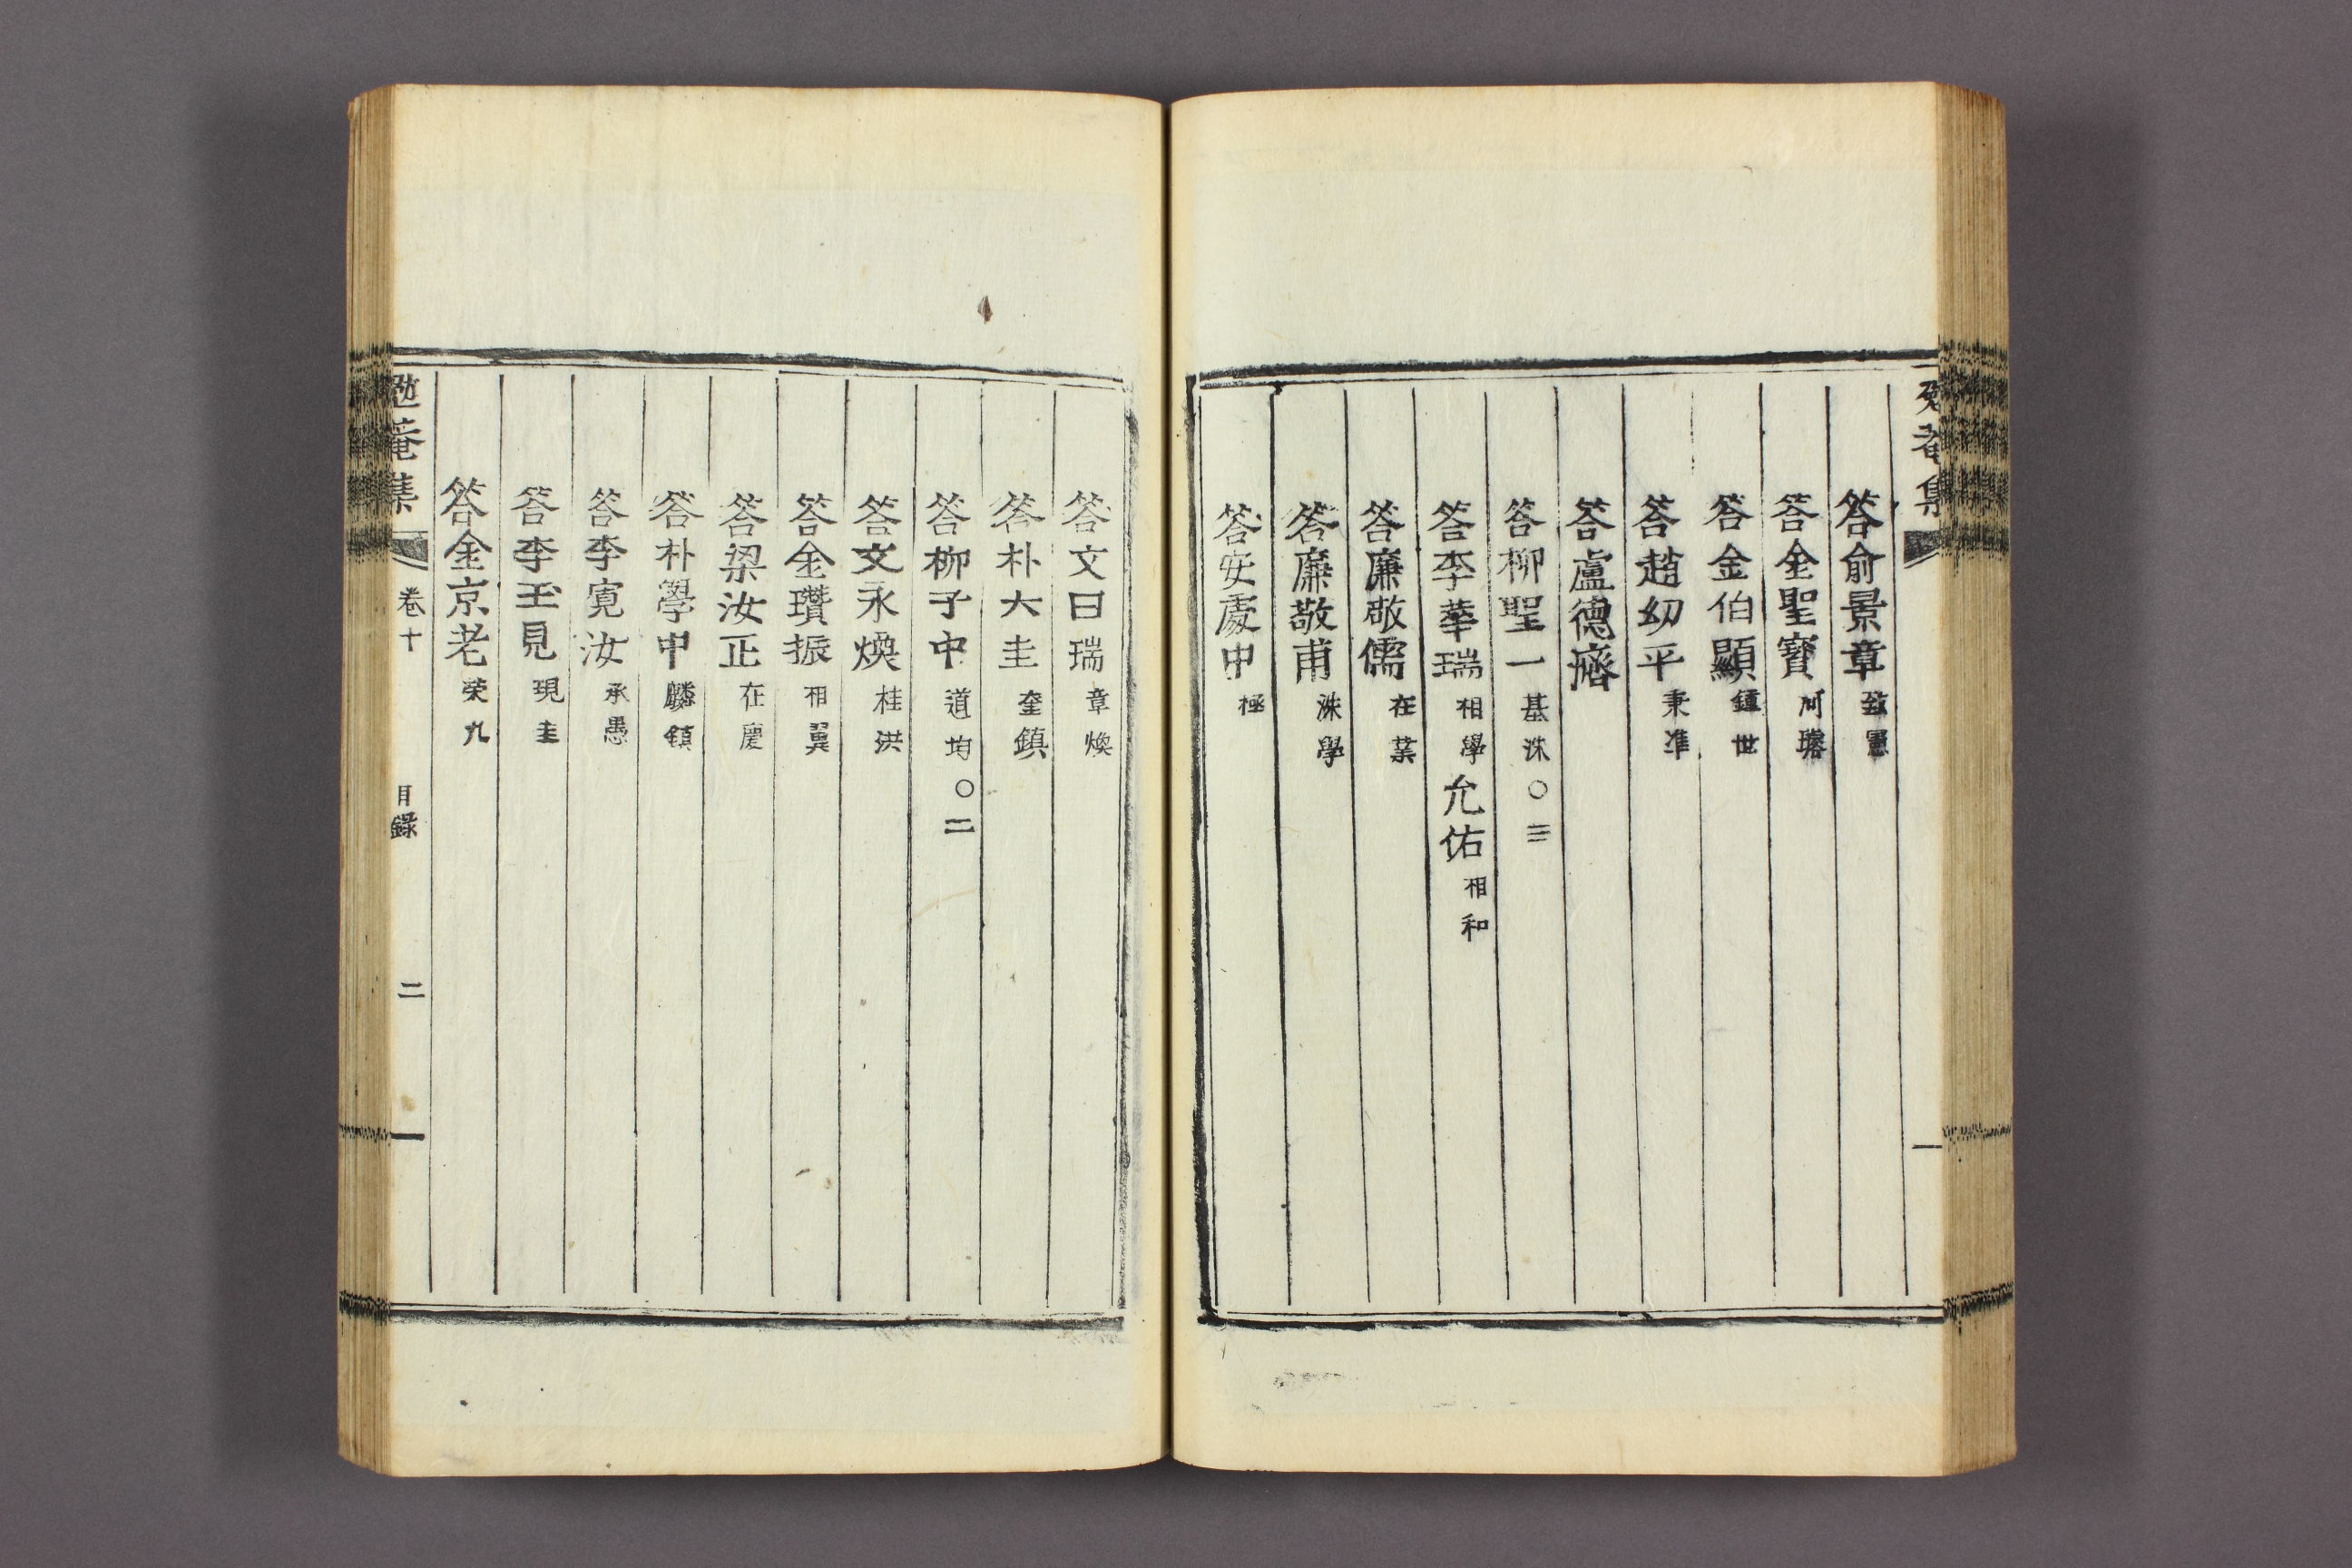 勉菴集
答俞景章 致憲
答金聖寶 河璿
答金伯顯 鍾世
答趙幼平 秉準
答盧德濟
答柳聖一 基洙○三
答李華瑞 相學 允佑 相和
答廉敬儒 在業
答廉敬甫 洙學
答安處中 極
答文日瑞 章煥
答朴大圭 奎鎮
答柳子中 道均○二
答文永煥 桂洪
答金瓚振 相翼
答梁汝正 在慶
答朴學中 麟鎮
答李寬汝 承愚
答李玉見 現圭
答金京老 榮九
勉菴集 卷十 目錄 二